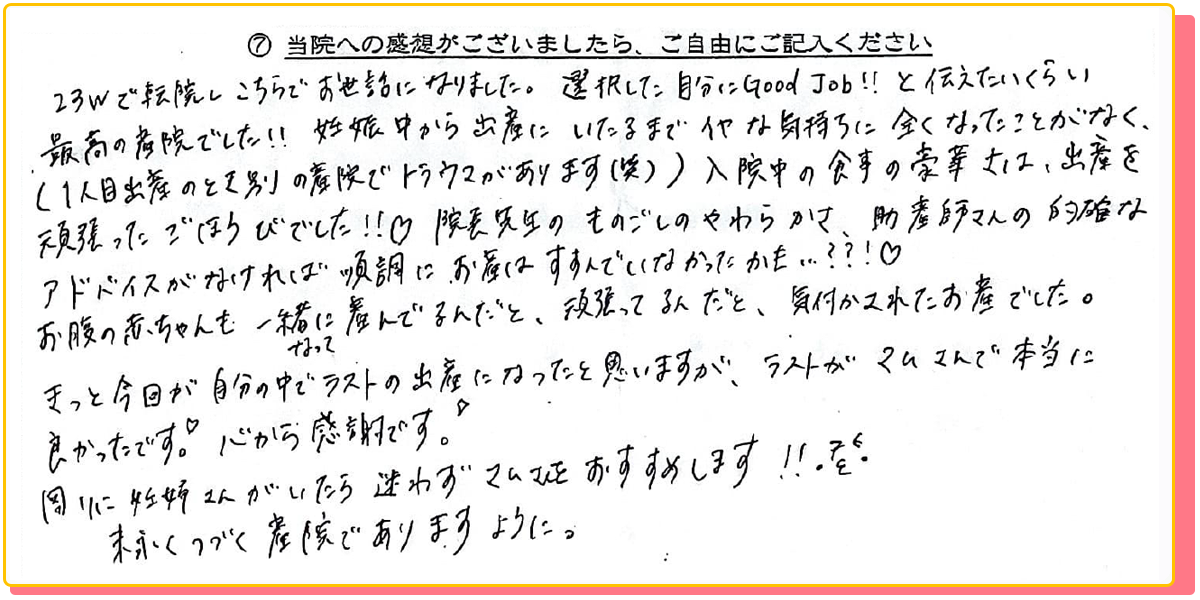 ⑦ 当院への感想がございましたら、ご自由にご記入ください
23Wで転院しこちらでお世話になりました。選択した自分にGood Job!!と伝えたいくらい
最高の産院でした!! 妊娠中から出産にいたるまでイヤな気持ちに全くなったことがなく、
(1人目出産のとき別の産院でトラウマがあります(笑))入院中の食事の豪華さは、出産を
頑張ったごほうびでした!!♡ 院長先生のものごしのやわらかさ、助産師さんの的確な
アドバイスがなければ順調にお産はすすんでいなかったかも…??!♡
お腹の赤ちゃんも一緒に産んでるんだと、頑張ってるんだと、気付かされたお産でした。
なって
きっと今回が自分の中でラストの出産になったと思いますが、ラストがマムさんで本当に
良かったです。♡ 心から感謝です。♡
周りに妊婦さんがいたら迷わずマムさんをおすすめします!!
末永くつづく産院でありますように。